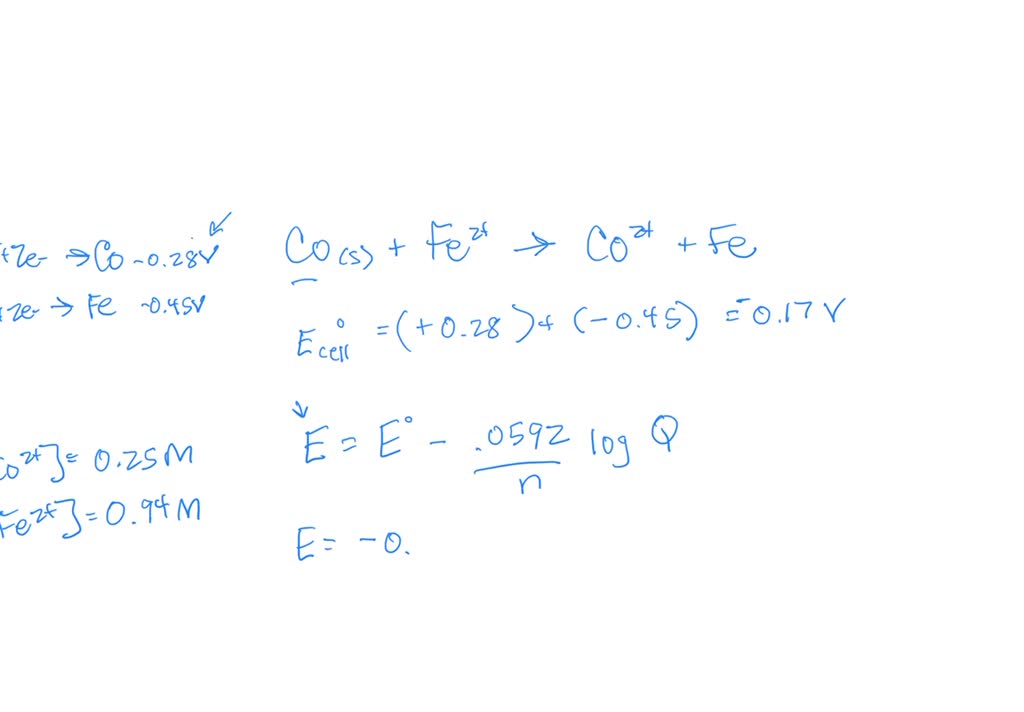 +2e- → Co -0.28V
+2e- → Fe -0.45V
Co(s) + Fe²⁺ → Co²⁺ + Fe
E°cell = (+0.28) + (-0.45) = -0.17 V
E = E° - .0592/n log Q
Co²⁺] = 0.25M
Fe²⁺] = 0.94M
E = -0.